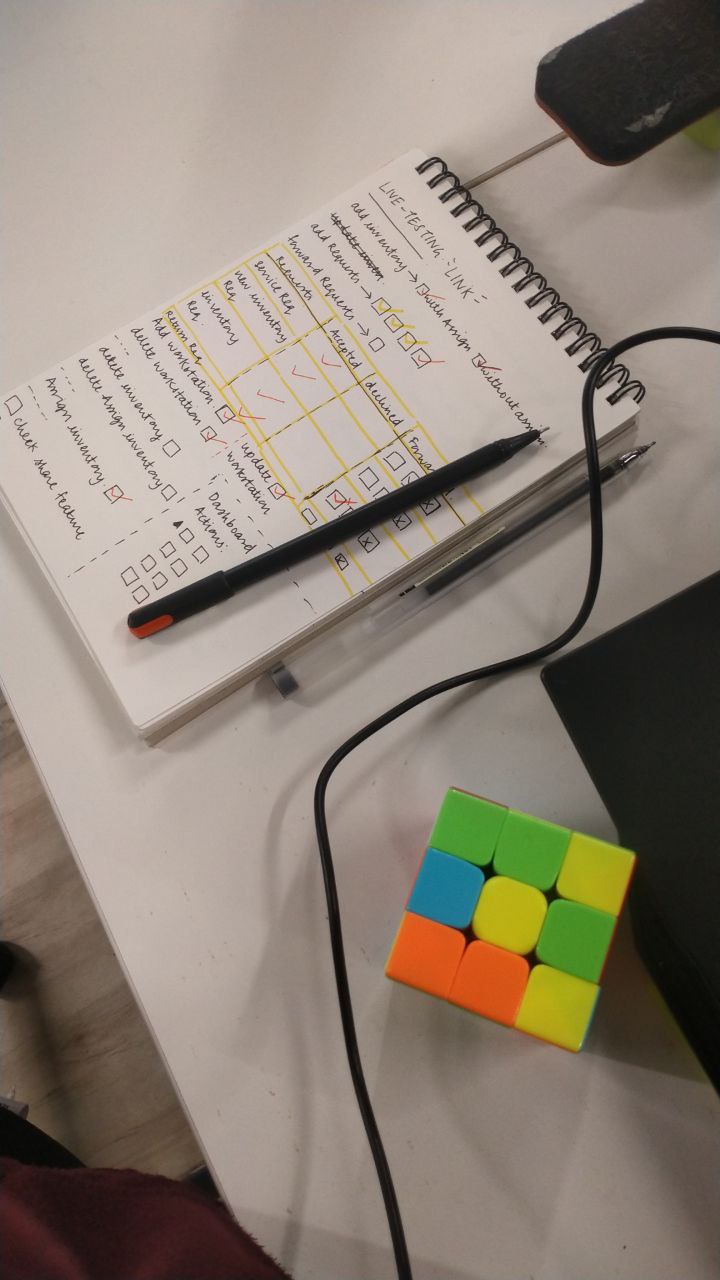 LIVE-TESTING: "LINK"
add inventory → with Assign without assign
add Requests →
forward Requests →
Requests Accepted declined Forwa
service Req
new inventory Req
inventory Req.
Return Req
Add workstation
delete workstation
update workstation
delete inventory
delete Assign inventory
Dashboard Actions:
Assign inventory
check share feature